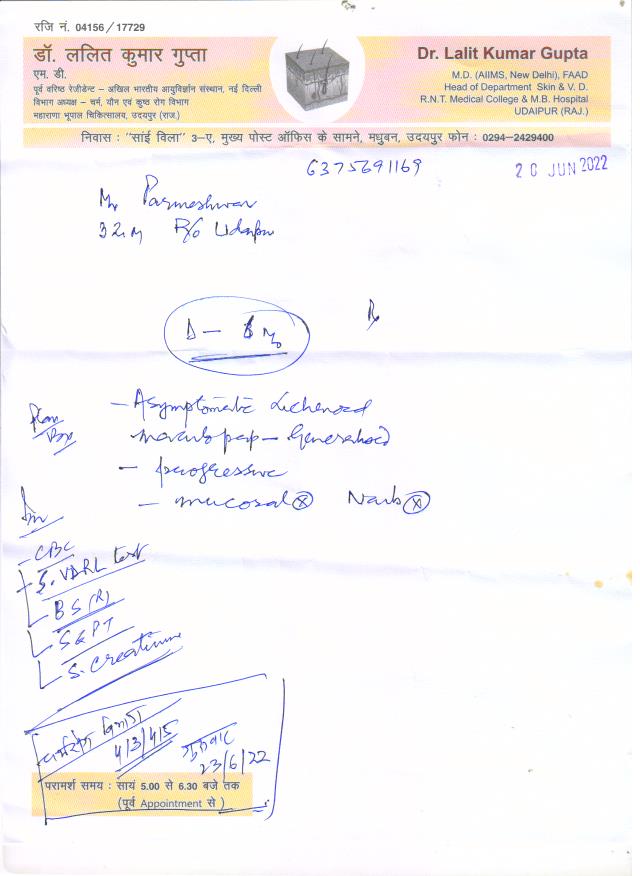 रजि नं. 04156/17729
डॉ. ललित कुमार गुप्ता
एम. डी.
पूर्व वरिष्ठ रेजीडेन्ट – अखिल भारतीय आयुर्विज्ञान संस्थान, नई दिल्ली
विभाग अध्यक्ष – चर्म, यौन एवं कुष्ठ रोग विभाग
महाराणा भूपाल चिकित्सालय, उदयपुर (राज.)
Dr. Lalit Kumar Gupta
M.D. (AIIMS, New Delhi), FAAD
Head of Department Skin & V. D.
R.N.T. Medical College & M.B. Hospital
UDAIPUR (RAJ.)
निवास : "सांई विला" 3–ए, मुख्य पोस्ट ऑफिस के सामने, मधुबन, उदयपुर फोन : 0294–2429400
6375691169
20 JUN 2022
Mr Parmeshwar
32 M R/o Udaipur
Rx
– Asymptomatic Lichenoid
maculopap – Generalised
– progressive
– mucosal ⓧ Nails ⓧ
Plan
Inv
– CBC
– S. VDRL test
– BS (R)
– SGPT
– S. Creatinine
चर्मरोग विभाग
4/3/4/5
गुरुवार
23/6/22
परामर्श समय : सायं 5.00 से 6.30 बजे तक
(पूर्व Appointment से)